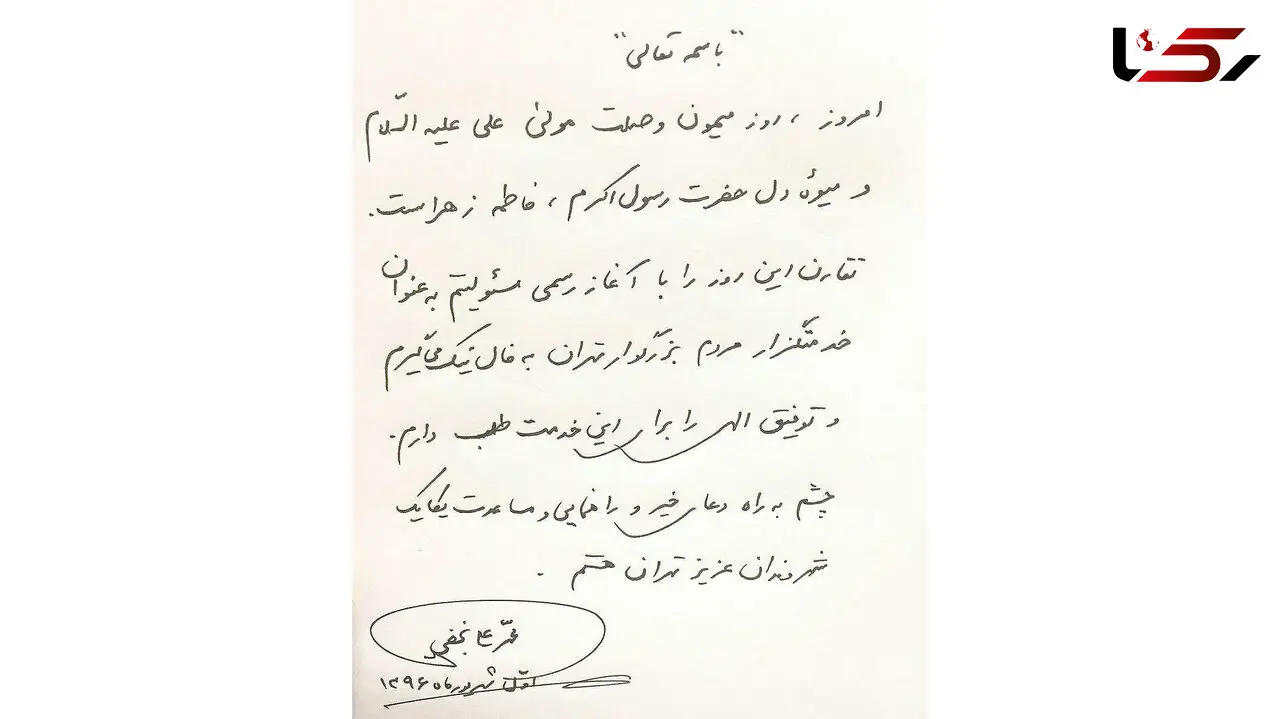 رکنا
"باسمه تعالی"
امروز ، روز میمون وصلت مولیٰ علی علیه السّلام
و میوهٔ دل حضرت رسول اکرم ، فاطمه زهراست.
تقارن این روز را با آغاز رسمی مسئولیتم به عنوان
خدمتگزار مردم بزرگوار تهران به فال نیک می‌گیرم
و توفیق الهی را برای این خدمت طلب دارم.
چشم به راه دعای خیر و راهنمایی و مساعدت یکایک
شهروندان عزیز تهران هستم .
محمّدعلی نجفی
اوّل شهریورماه ۱۳۹۶